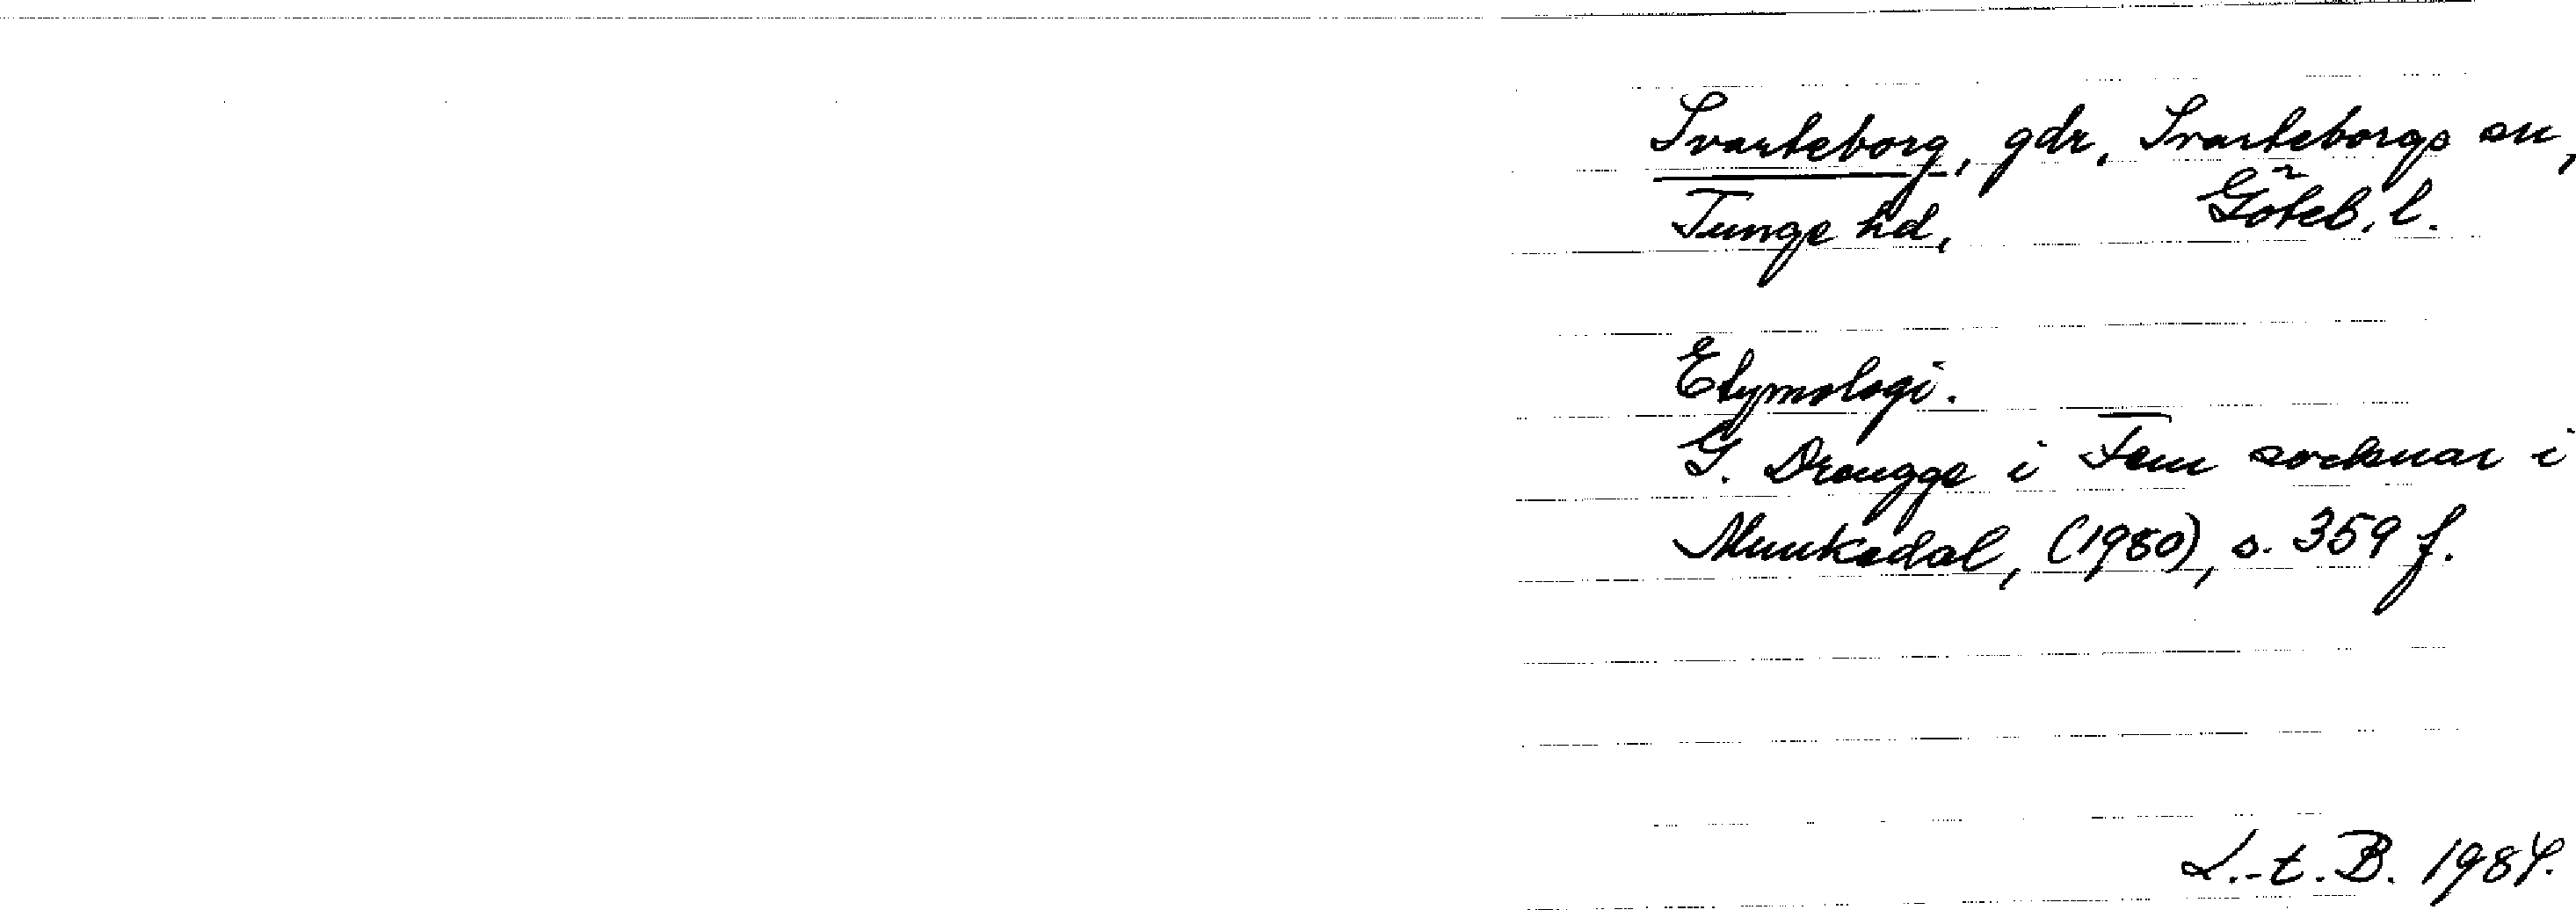 Svarteborg, gdr, Svarteborgs sn,
Tunge hd, Göteb. l.
Etymologi.
G. Drougge i Fem socknar i
Munkedal, (1980), s. 359 f.
L.-t. B. 1984.